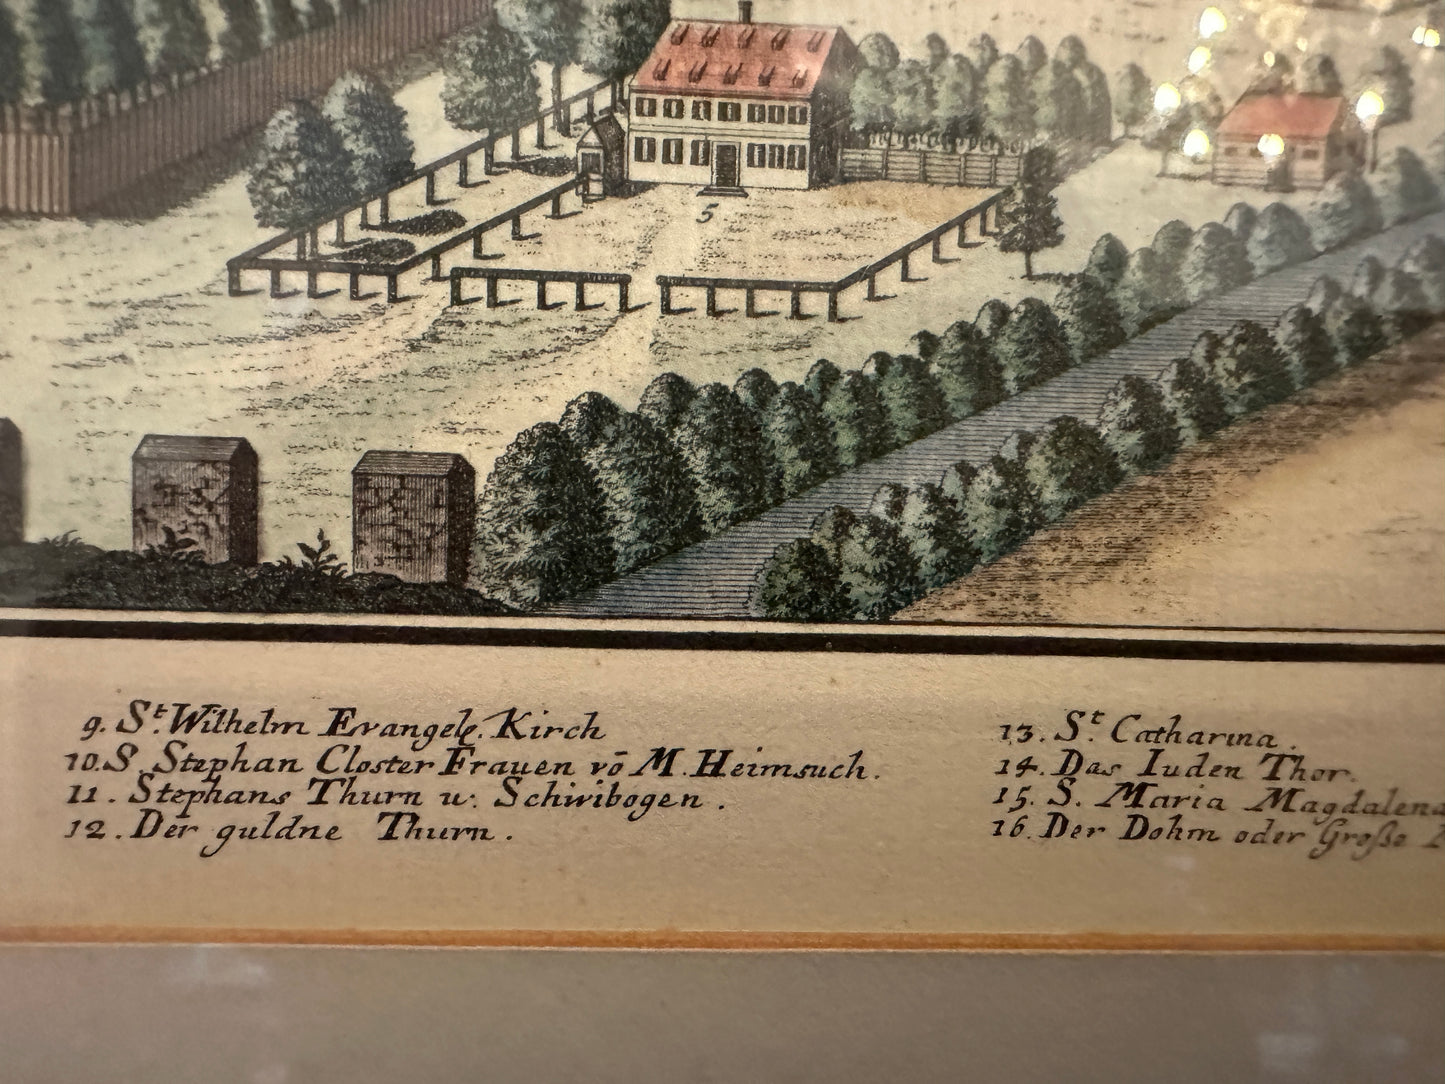 5
9. St. Wilhelm Evangel. Kirch
10. S. Stephan Closter Frauen vō M. Heimsuch.
11. Stephans Thurn u. Schwibogen.
12. Der guldne Thurn.
13. St. Catharina.
14. Das Iuden Thor.
15. S. Maria Magdalena
16. Der Dohm oder Große